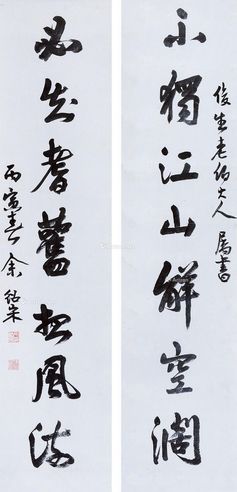 俊生老伯大人 屬書
不獨江山解空闊
必耆舊風流
丙寅春 余紹宋